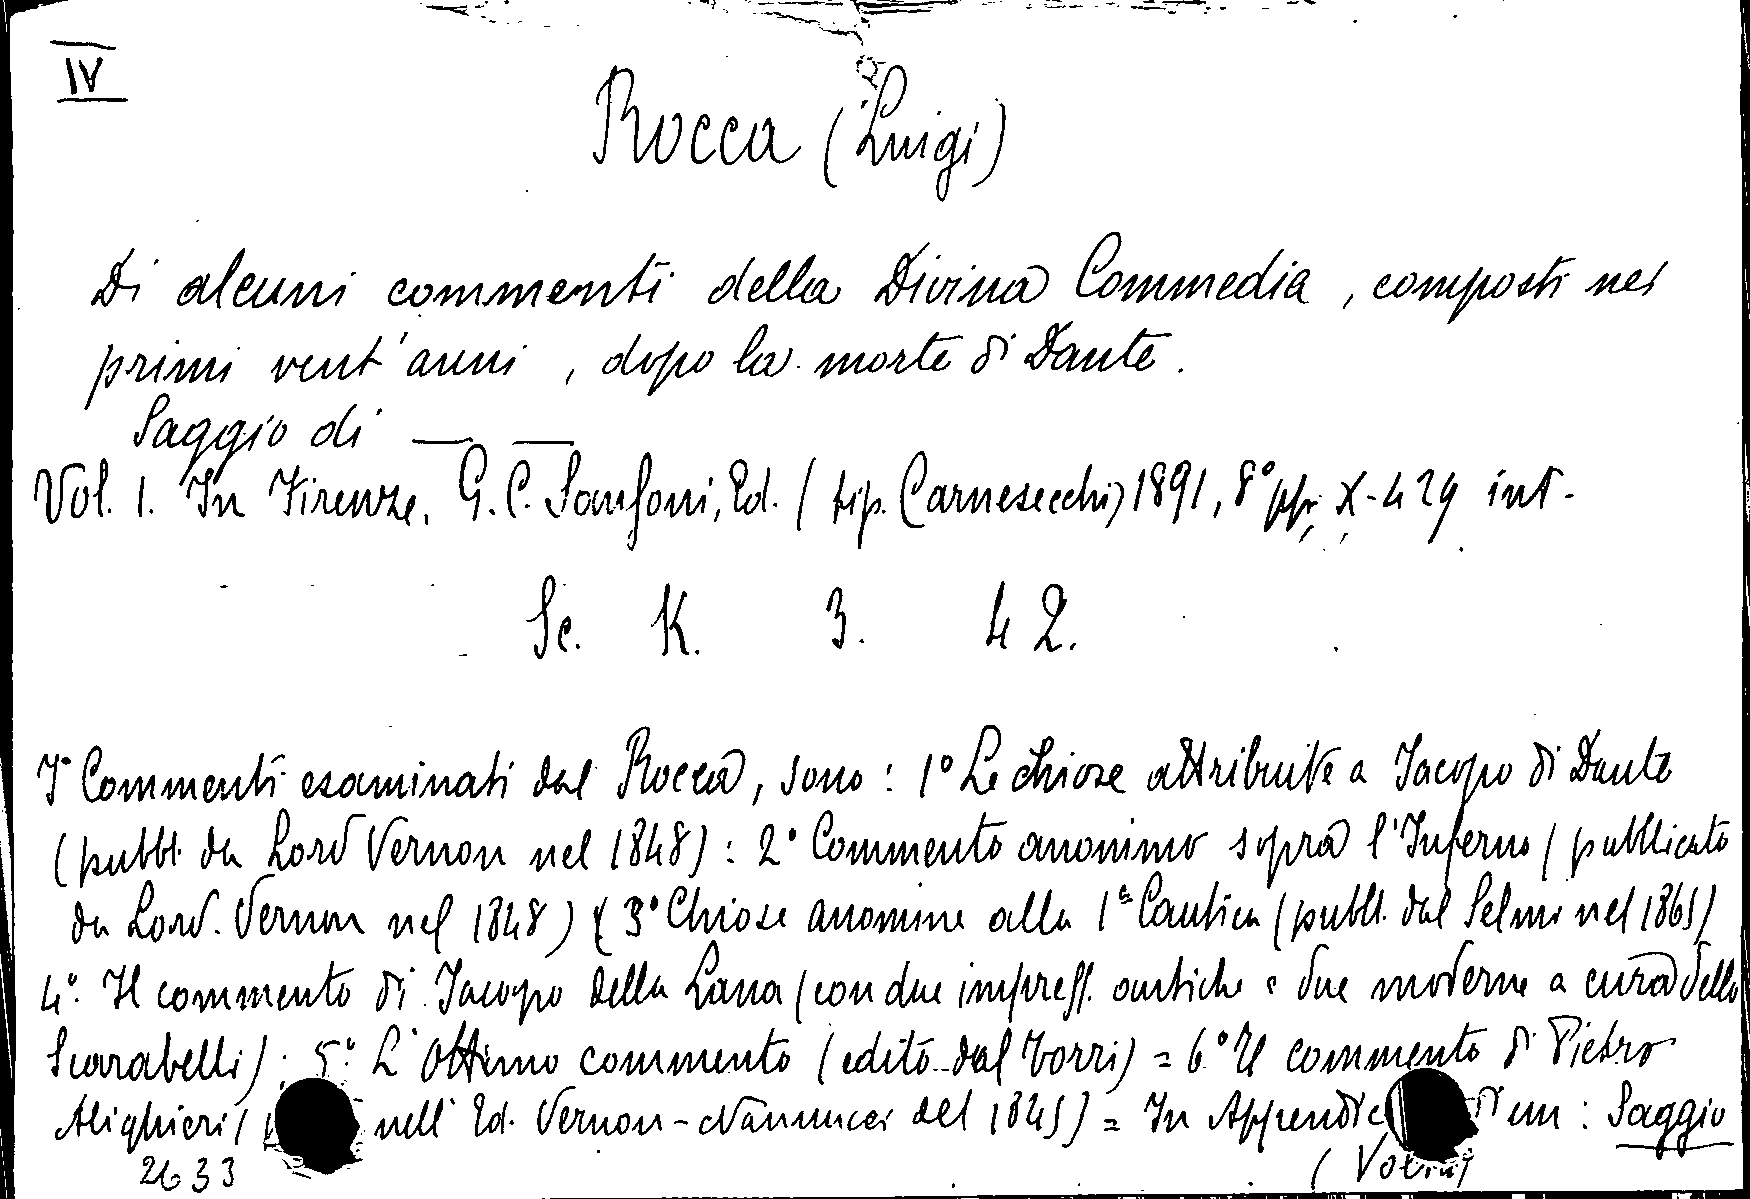 IV
Rocca (Luigi)
Di alcuni commenti della Divina Commedia, composti nei
primi vent'anni, dopo la morte di Dante.
Saggio di — —
Vol. 1. In Firenze, G. C. Sansoni, Ed. (tip. Carnesecchi) 1891, 8° pp. X-429 int-
Sc. K. 3. 42.
I Commenti esaminati dal Rocca, sono: 1° Le chiose attribuite a Jacopo di Dante
(pubbl. da Lord Vernon nel 1848): 2° Commento anonimo sopra l'Inferno (pubblicato
da Lord. Vernon nel 1848) 3° Chiose anonime alla 1ª Cantica (pubbl. dal Selmi nel 1865)
4°. Il commento di Jacopo della Lana (con due impress. antiche e due moderne a cura dello
Scarabelli); 5° L'Ottimo commento (edito dal Torri) = 6° Il commento di Pietro
Alighieri ( nell'Ed. Vernon-Nannucci del 1845) = In Appendice di un: Saggio
2633 (Volta)